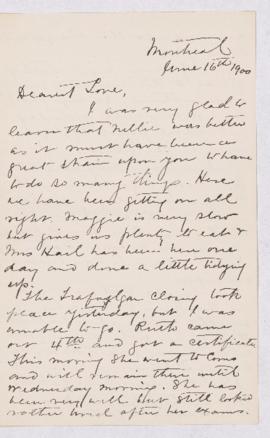 Montreal
June 16th 1900
Dearest Love,
I was very glad to
learn that Nellie was better
as it must have been a
great strain upon you to have
to do so many things. Here
we have been getting on all
right. Maggie is very slow
but gives us plenty to eat &
Mrs Hail has been here one
day and done a little tidying
up.
The Trafalgar closing took
place yesterday, but I was
unable to go. Ruth came
out 4th and got a certificate
This morning she went to
and will remain there until
Wednesday morning. She has
been very well but still looks
rather tired after her exams.